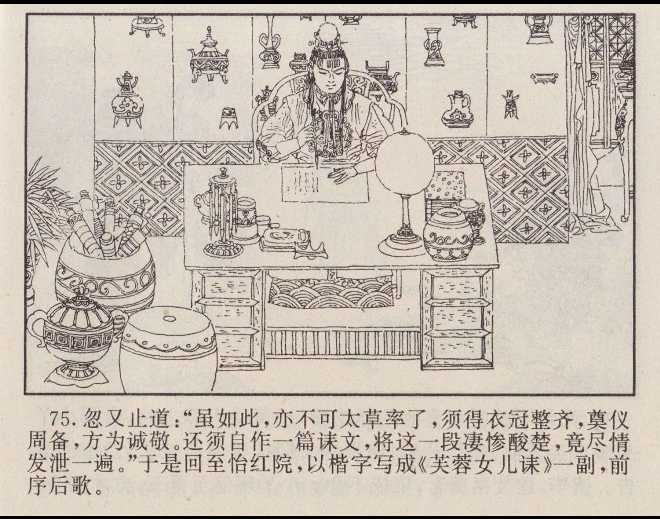 75. 忽又止道：“虽如此，亦不可太草率了，须得衣冠整齐，奠仪
周备，方为诚敬。还须自作一篇诔文，将这一段凄惨酸楚，竟尽情
发泄一遍。”于是回至怡红院，以楷字写成《芙蓉女儿诔》一副，前
序后歌。